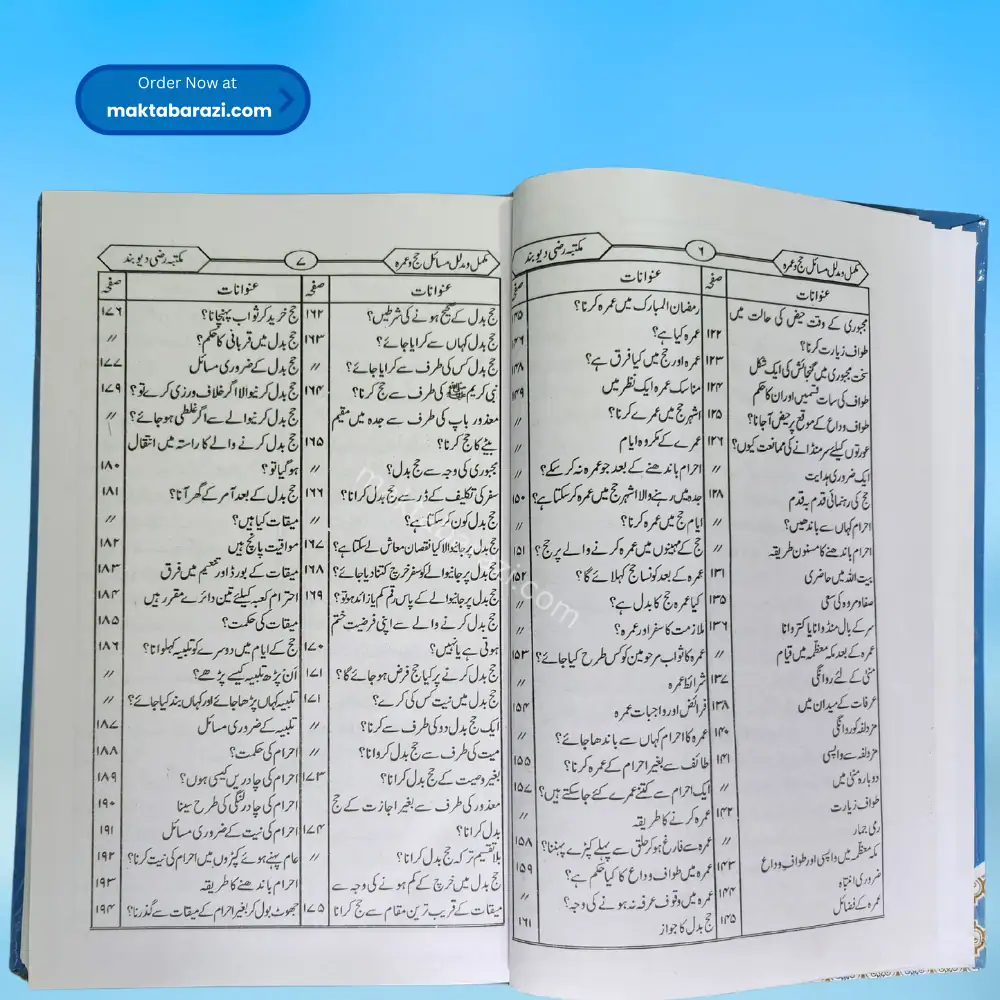 Order Now at
maktabarazi.com
مکمل و مدلل مسائل حج و عمرہ ۶ مکتبہ رضی دیوبند
عنوانات صفحہ
مجبوری کے وقت حیض کی حالت میں
طواف زیارت کرنا؟ ۱۲۲
سخت مجبوری میں گنجائش کی ایک شکل ۱۲۳
طواف کی سات قسمیں اور ان کا حکم ۱۲۴
طواف وداع کے موقع پر حیض آجانا؟ ۱۲۵
عورتوں کیلئے سر منڈانے کی ممانعت کیوں؟ ۱۲۶
ایک ضروری ہدایت 〃
حج کی رہنمائی قدم بہ قدم ۱۲۸
احرام کہاں سے باندھیں؟ 〃
احرام باندھنے کا مسنون طریقہ 〃
بیت اللہ میں حاضری ۱۳۱
صفا و مروہ کی سعی ۱۳۵
سر کے بال منڈوانا یا کتروانا ۱۳۶
عمرہ کے بعد مکہ معظمہ میں قیام 〃
منیٰ کے لئے روانگی ۱۳۷
عرفات کے میدان میں ۱۳۸
مزدلفہ کو روانگی ۱۴۰
مزدلفہ سے واپسی ۱۴۱
دوبارہ منیٰ میں 〃
طواف زیارت ۱۴۲
رمی جمار 〃
مکہ معظمہ میں واپسی اور طواف وداع ۱۴۳
ضروری انتباہ ۱۴۴
عمرہ کے فضائل ۱۴۵
عنوانات
رمضان المبارک میں عمرہ کرنا؟
عمرہ کیا ہے؟
عمرہ اور حج میں کیا فرق ہے؟
مناسک عمرہ ایک نظر میں
اشہر حج میں عمرے کرنا؟
عمرے کے مکروہ ایام
احرام باندھنے کے بعد جو عمرہ نہ کر سکے؟
جدہ میں رہنے والا اشہر حج میں عمرہ کر سکتا ہے؟ ۱۵۰
ایام حج میں عمرہ کرنا؟ 〃
حج کے مہینوں میں عمرہ کرنے والے پر حج؟ ۱۵۱
عمرہ کے بعد کونسا حج کہلائے گا؟ ۱۵۲
کیا عمرہ حج کا بدل ہے؟ 〃
ملازمت کا سفر اور عمرہ؟ 〃
عمرہ کا ثواب مرحومین کو کس طرح کیا جائے؟ ۱۵۳
شرائط عمرہ 〃
فرائض اور واجبات عمرہ ۱۵۴
عمرہ کا احرام کہاں سے باندھا جائے؟ 〃
طائف سے بغیر احرام کے عمرہ کرنا؟ ۱۵۵
ایک احرام سے کتنے عمرے کئے جاسکتے ہیں؟ ۱۵۷
عمرہ کرنے کا طریقہ 〃
عمرہ سے فارغ ہو کر حلق سے پہلے کپڑے پہننا؟ ۱۵۸
عمرہ میں طواف وداع کا کیا حکم ہے؟ ۱۵۹
عمرہ میں وقوف عرفہ نہ ہونے کی وجہ؟ 〃
حج بدل کا جواز ۱۶۱
مکمل و مدلل مسائل حج و عمرہ ۷ مکتبہ رضی دیوبند
عنوانات صفحہ
حج بدل کے صحیح ہونے کی شرطیں؟ ۱۶۲
حج بدل کہاں سے کرایا جائے؟ ۱۶۳
حج بدل کس کی طرف سے کرایا جائے؟ 〃
نبی کریم ﷺ کی طرف سے حج کرنا؟ ۱۶۴
معذور باپ کی طرف سے جدہ میں مقیم
بیٹے کا حج کرنا؟ ۱۶۵
مجبوری کی وجہ سے حج بدل؟ 〃
سفر کی تکلیف کے ڈر سے حج بدل کرانا؟ ۱۶۶
حج بدل کون کر سکتا ہے؟ 〃
حج بدل پر جانیوالا کیا نقصان معاش لے سکتا ہے؟ ۱۶۷
حج بدل پر جانیوالے کو سفر خرچ کتنا دیا جائے؟ ۱۶۸
حج بدل پر جانیوالے کے پاس رقم کم یا زائد ہو تو؟ ۱۶۹
حج بدل کرنے والے سے اپنی فرضیت ختم
ہوتی ہے یا نہیں؟ ۱۷۰
حج بدل کرنے پر کیا حج فرض ہو جائے گا؟ ۱۷۱
حج بدل میں نیت کس کی کرے؟ ۱۷۱
ایک حج بدل دو کی طرف سے کرنا؟ 〃
میت کی طرف سے حج بدل کروانا؟ 〃
بغیر وصیت کے حج بدل کرانا؟ ۱۷۳
معذور کی طرف سے بغیر اجازت کے حج
بدل کرانا؟ ۱۷۴
بلا تقسیم ترکہ حج بدل کرانا؟ 〃
حج بدل میں خرچ کے کم ہونے کی وجہ سے
میقات کے قریب ترین مقام سے حج کرانا ۱۷۵
عنوانات صفحہ
حج خرید کر ثواب پہنچانا؟ ۱۷۶
حج بدل میں قربانی کا حکم؟ 〃
حج بدل کے ضروری مسائل ۱۷۷
حج بدل کرنیوالا اگر خلاف ورزی کرے تو؟ ۱۷۹
حج بدل کرنیوالے سے اگر غلطی ہو جائے؟ 〃
حج بدل کرنے والے کا راستہ میں انتقال
ہو گیا تو؟ ۱۸۰
حج بدل کے بعد آمر کے گھر آنا؟ ۱۸۱
میقات کیا ہیں؟ 〃
مواقیت پانچ ہیں ۱۸۲
میقات کے بورڈ اور تنعیم میں فرق ۱۸۳
احترام کعبہ کیلئے تین دائرے مقرر ہیں ۱۸۴
میقات کی حکمت؟ ۱۸۵
حج کے ایام میں دوسرے کو تلبیہ کہلوانا؟ ۱۸۶
اَن پڑھ تلبیہ کیسے پڑھے؟ 〃
تلبیہ کہاں پڑھا جائے اور کہاں بند کیا جائے؟ 〃
تلبیہ کے ضروری مسائل ۱۸۷
احرام کی حکمت؟ ۱۸۸
احرام کی چادریں کیسی ہوں؟ ۱۸۹
احرام کی چادر لنگی کی طرح سینا ۱۹۰
احرام کی نیت کے ضروری مسائل ۱۹۱
عام پہنے ہوئے کپڑوں میں احرام کی نیت کرنا؟ ۱۹۲
احرام باندھنے کا طریقہ ۱۹۳
جھوٹ بول کر بغیر احرام کے میقات سے گذرنا؟ ۱۹۴